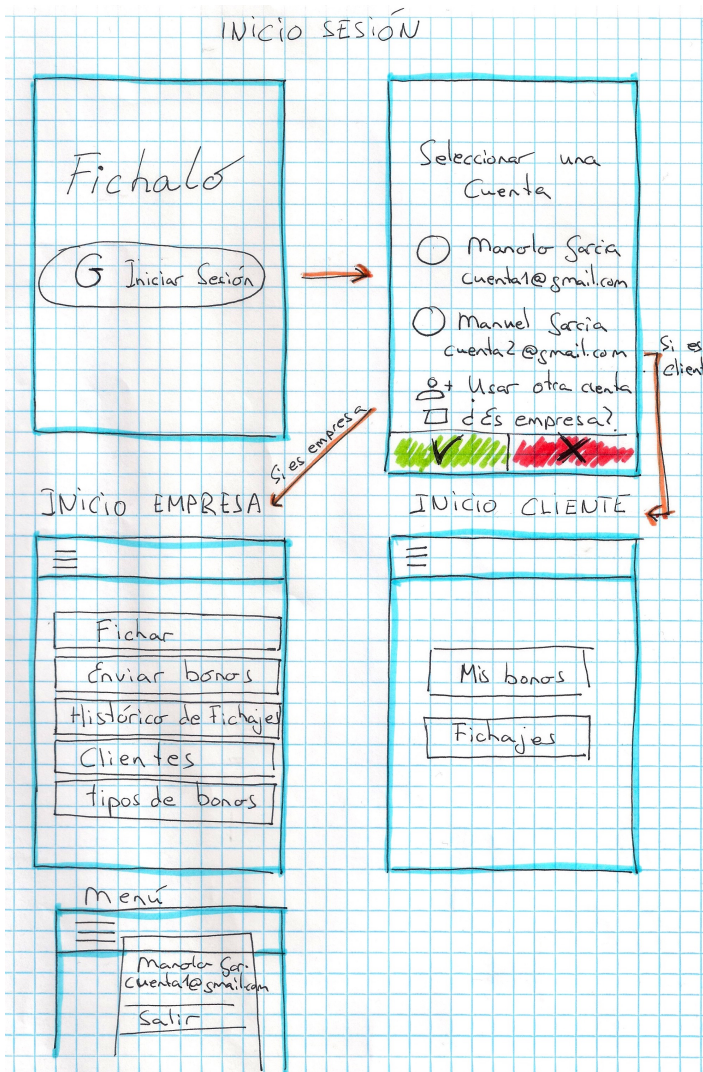 INICIO SESIÓN
Fichaló
G Iniciar Sesión
Seleccionar una
Cuenta
Manolo García
cuenta1@gmail.com
Manuel García
cuenta2@gmail.com
Usar otra cuenta
¿Es empresa?
Si es
client
Si es empresa
INICIO EMPRESA
Fichar
Enviar bonos
Histórico de Fichajes
Clientes
tipos de bonos
INICIO CLIENTE
Mis bonos
Fichajes
Menú
Manolo Gar.
cuenta1@gmail.com
Salir